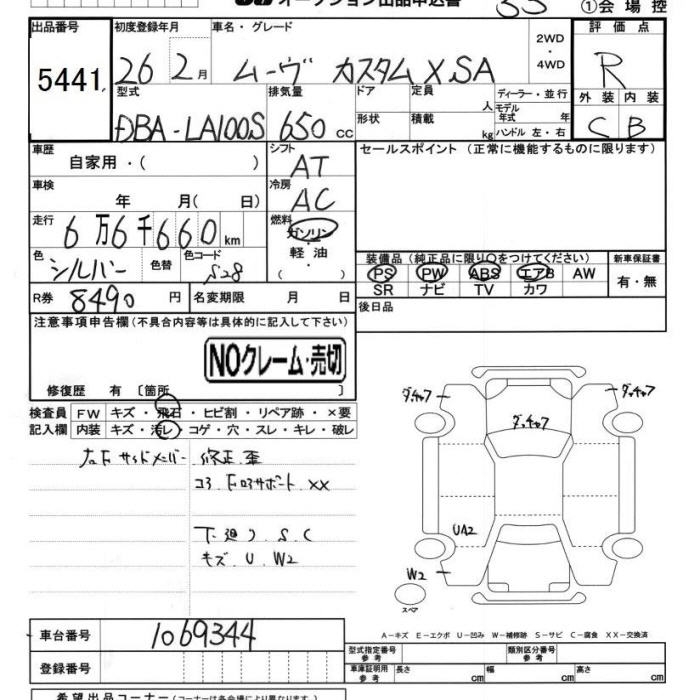 オークション出品申込書 ①会場控
出品番号 初度登録年月 車名・グレード 2WD・4WD 評価点
5441 26 2月 ムーヴ カスタム X.SA R
型式 排気量 ドア 定員 人 ディーラー・並行 モデル年式 年 外装 内装
DBA-LA100S 650cc 形状 積載 kg ハンドル 左・右 C B
車歴 シフト セールスポイント (正常に機能するものに限ります)
自家用・( ) AT
車検 冷房
年 月( 日) AC
走行 燃料
6万6千660km ガソリン・軽油・( )
色 色替 色コード 装備品 (純正品に限り○をつけてください) 新車保証書
シルバー S28 PS PW ABS エアB AW 有・無
SR ナビ TV カワ
R券 8490円 名変期限 月 日 後日品
注意事項申告欄(不具合内容等は具体的に記入して下さい)
NOクレーム・売切
修復歴 有 〔箇所 〕
検査員 FW キズ・飛石・ヒビ割・リペア跡・×要
記入欄 内装 キズ・汚レ・コゲ・穴・スレ・キレ・破レ
左右F サイドメンバー 修正、歪
コア、F ロアサポート XX
下廻り S.C
キズ U W2
ダッチャフ ダッチャフ
ダッチャフ
UA2
W2
スペア
A-キズ E-エクボ U-凹み W-補修跡 S-サビ C-腐食 XX-交換済
車台番号 1069344
型式指定番号 参考 類別区分番号 参考
登録番号 車庫証明用 参考 長さ cm 幅 cm 高さ cm
希望出品コーナー(コーナーは各会場により異なります)